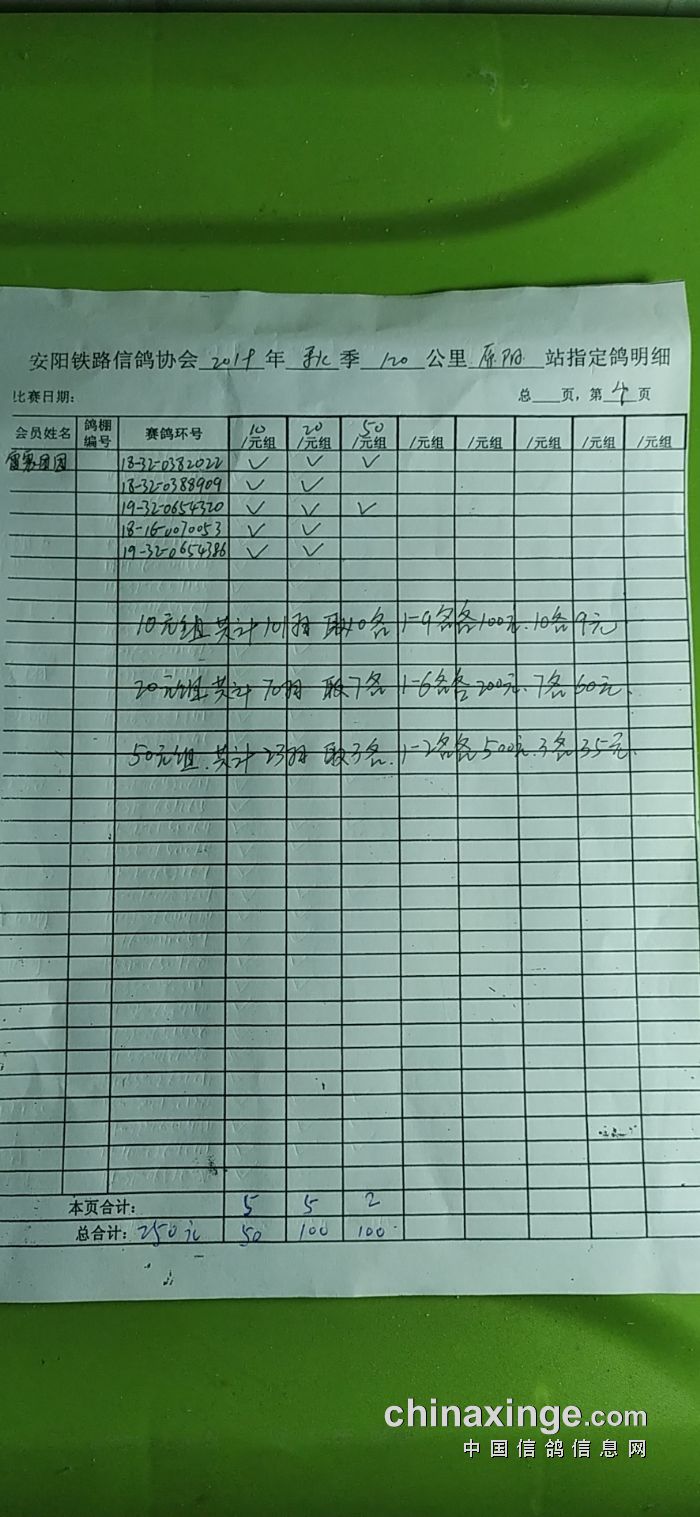 安阳铁路信鸽协会 2019 年 秋 季 120 公里 原阳 站指定鸽明细
比赛日期: 总 页,第 4 页
会员姓名 鸽棚编号 赛鸽环号 10/元组 20/元组 50/元组 /元组 /元组 /元组 /元组 /元组
18-32-0382022 ✓ ✓ ✓
18-32-0388909 ✓ ✓
19-32-0654320 ✓ ✓ ✓
18-16-0070053 ✓ ✓
19-32-0654386 ✓ ✓
10元组共计101羽 取10名 1-9名各100元.10名9元
20元组.共计70羽 取7名 1-6名各200元.7名60元.
50元组.共计23羽 取3名.1-2名各500元.3名35元.
本页合计: 5 5 2
总合计: 250元 50 100 100
chinaxinge.com
中国信鸽信息网